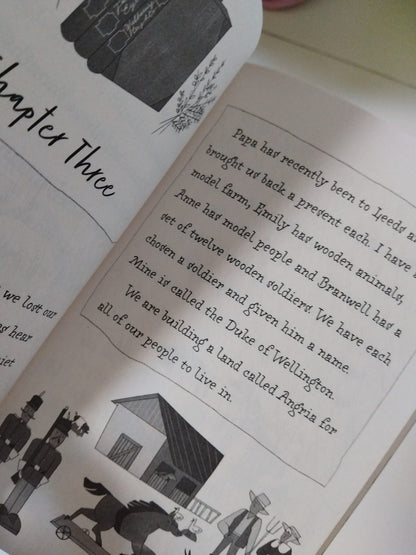 Chapter Three
we lost our
hear
Papa has recently been to Leeds
brought us back a present each. I have
model farm, Emily has wooden animals,
Anne has model people and Branwell has a
set of twelve wooden soldiers. We have each
chosen a soldier and given him a name.
Mine is called the Duke of Wellington.
We are building a land called Angria for
all of our people to live in.